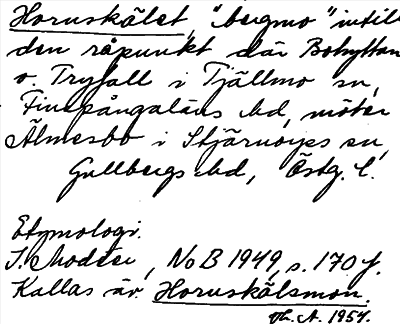 Horuskälet, "bergmo" intill
den råpunkt där Botnyttan
o. Tryfall i Tjällmo sn,
Finspångaläns hd, möter
Älmesbo i Stjärnorps sn,
Gullbergs hd, Östg. l.
Etymologi.
I. Modéer, NoB 1949, s. 170 f.
Kallas äv. Horuskälsmon.
A. 1954.